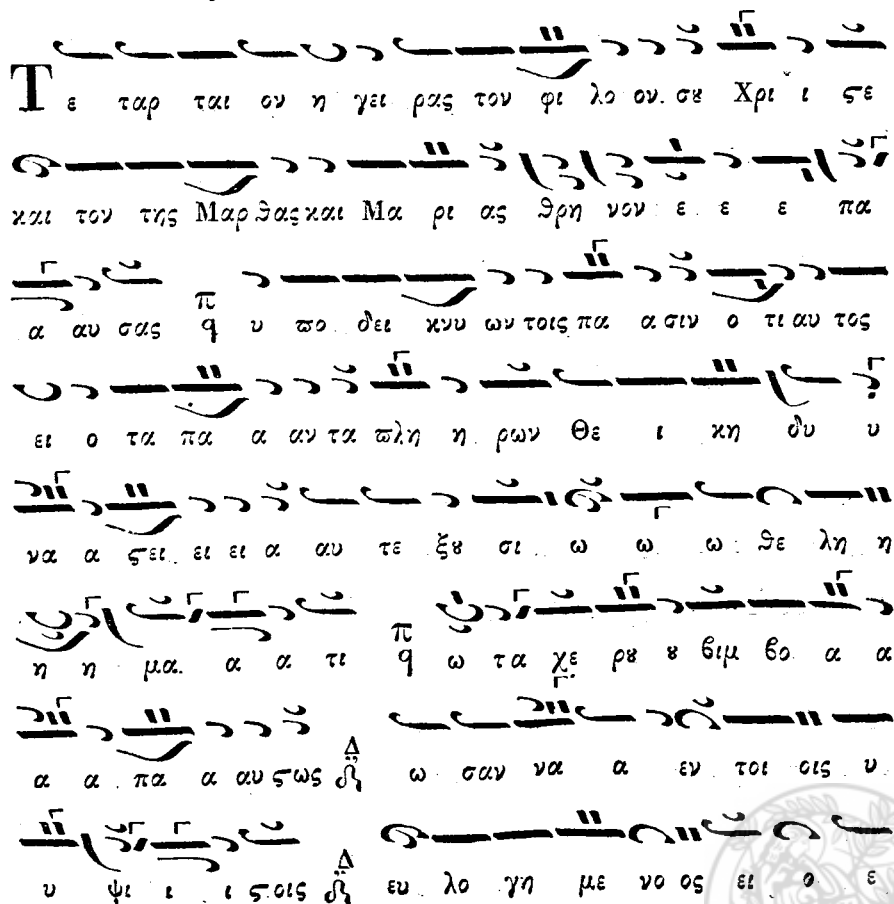 Τε ταρ ται ον η γει ρας τον φι λο ον σȣ Χρι ι ϛε
και τον της Μαρ ϑας και Μα ρι ας ϑρη νον ε ε ε πα
α αυ σας π ϥ υ ϖο δει κνυ ων τοις πα α σιν ο τι αυ τος
ει ο τα πα α αν τα ϖλη η ρων Θε ι κη δυ υ
να α ϛει ει ει α αυ τε ξȣ σι ω ω ω ϑε λη η
η η μα α α τι π ϥ ω τα χε ρȣ ȣ ϐιμ ϐο α α
α α πα α αυ ϛως Δ ω σαν να α εν τοι οις υ
υ ψι ι ι ϛοις Δ ευ λο γη με νο ος ει ο ε